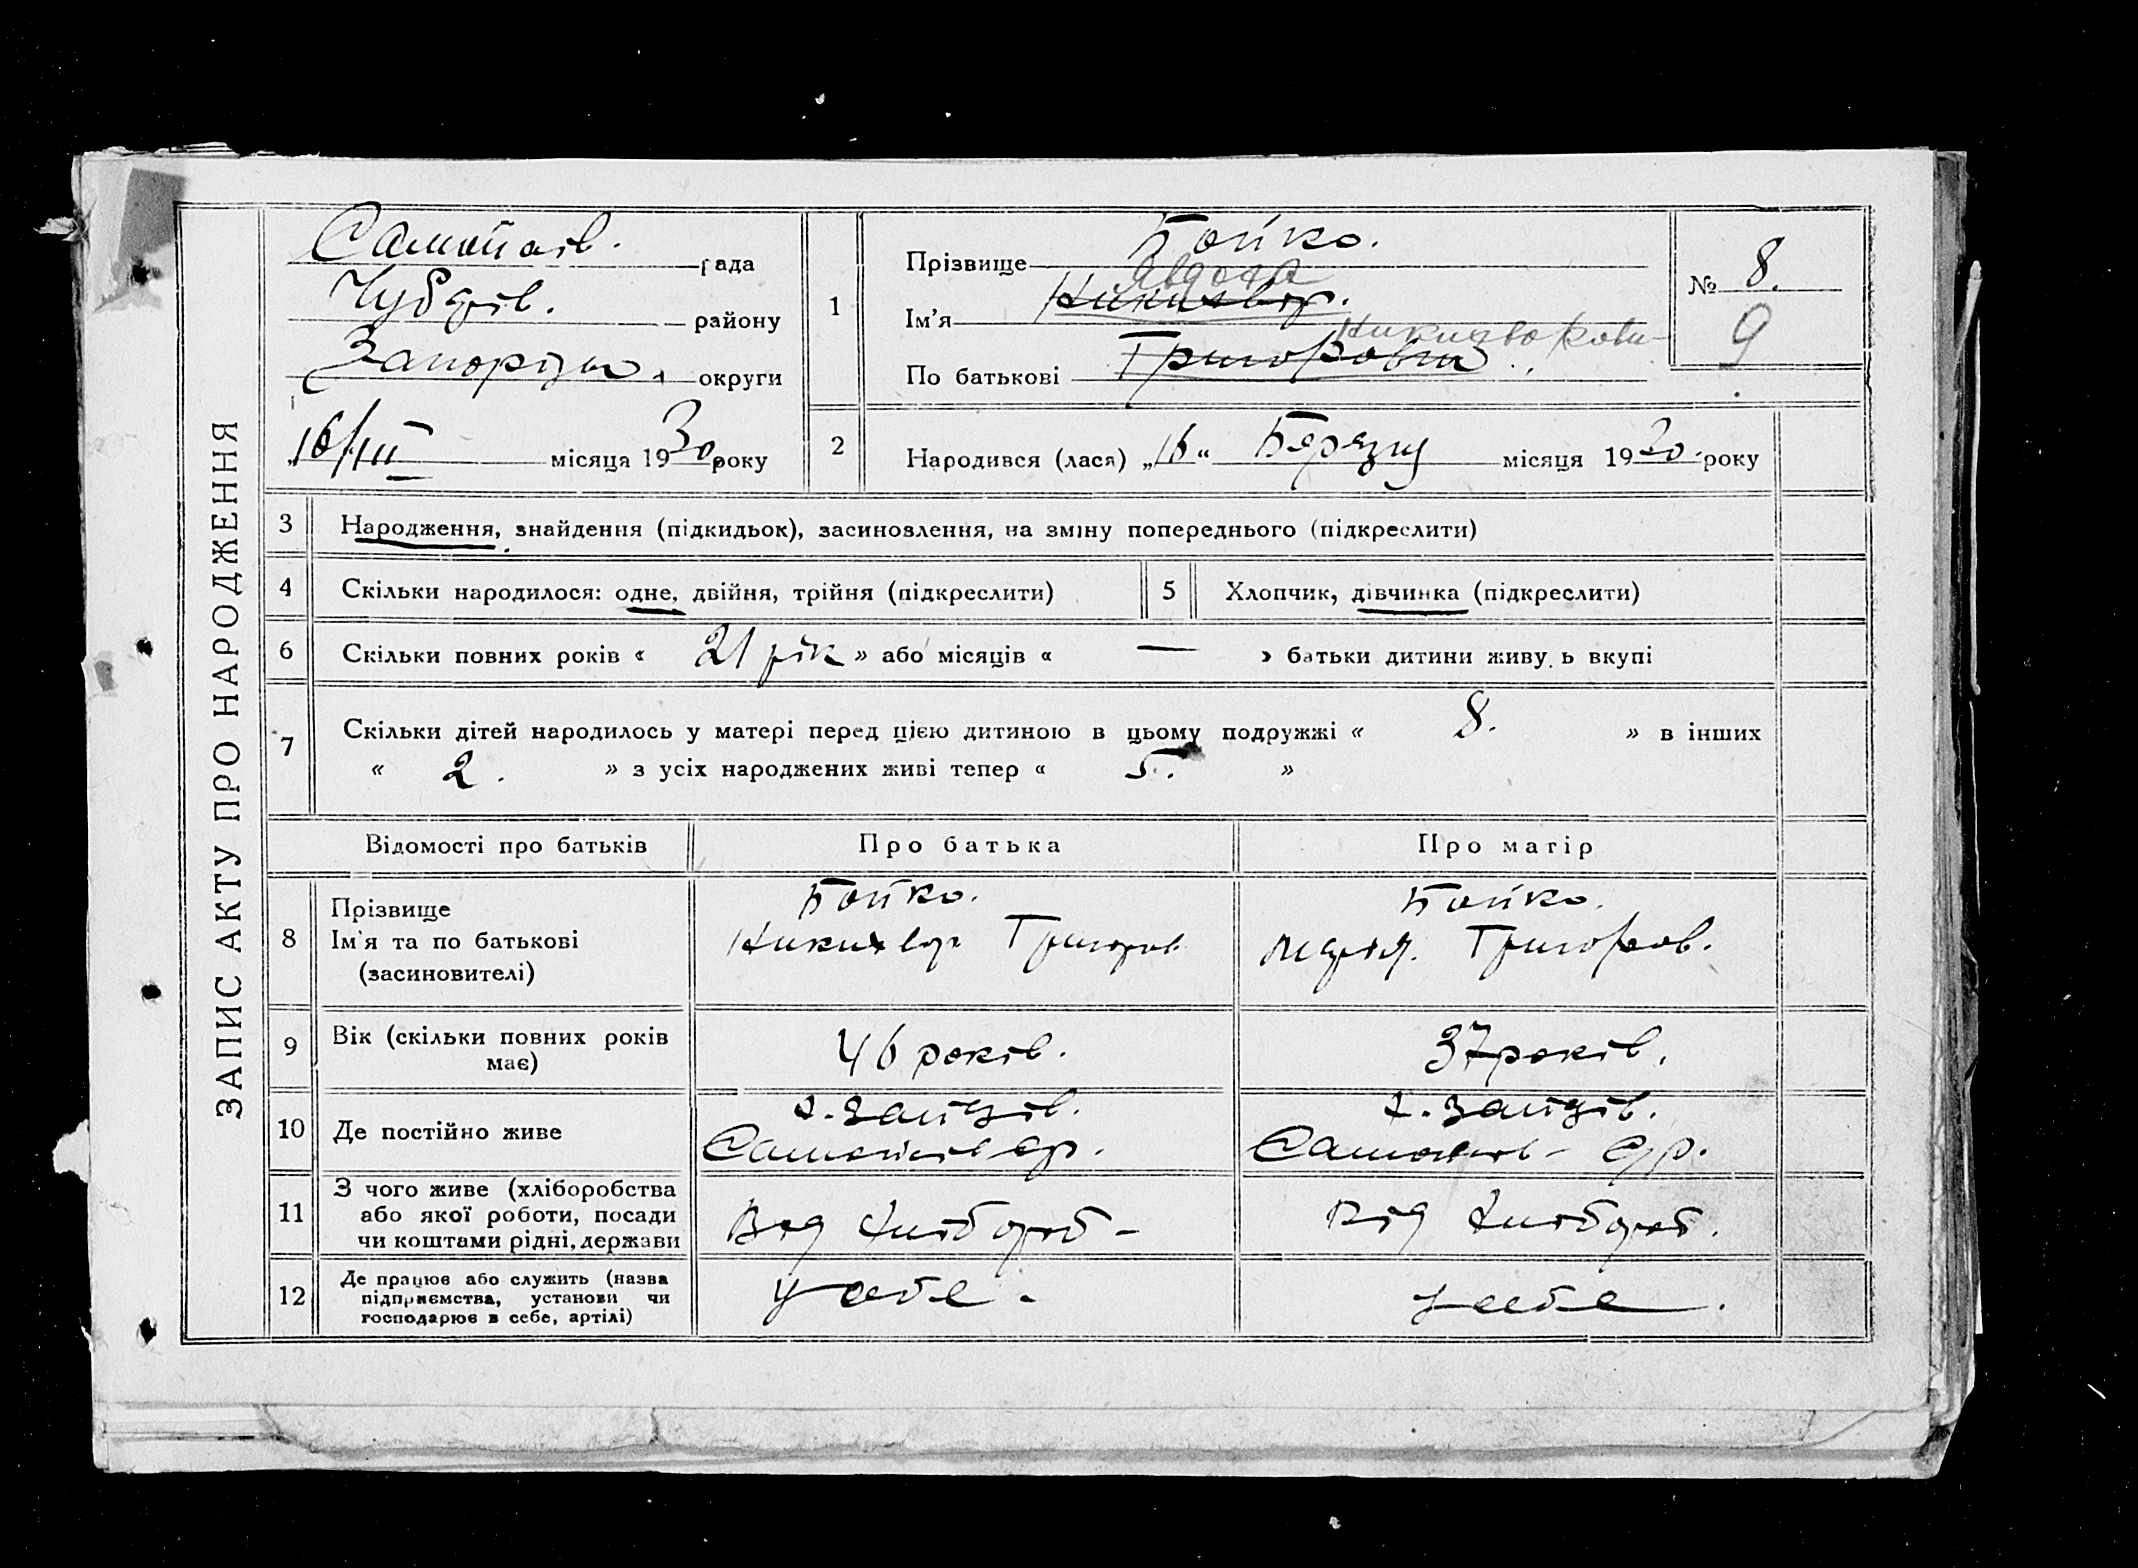 ЗАПИС АКТУ ПРО НАРОДЖЕННЯ
Самойлів. рада
Чубарів. району
Запорізьк. округи
16/III місяця 1930 року
1
Прізвище Бойко.
Явдоха
Ім'я Никихвор.
Никихворовн-
По батькові Григоровна
№ 8.
9
2
Народився (лася) „16“ Березня місяця 1930. року
3 Народження, знайдення (підкидьок), засиновлення, на зміну попереднього (підкреслити)
4 Скільки народилося: одне, двійня, трійня (підкреслити)
5 Хлопчик, дівчинка (підкреслити)
6 Скільки повних років « 21 рік » або місяців « — » батьки дитини живуть вкупі
7 Скільки дітей народилось у матері перед цією дитиною в цьому подружжі « 8. » в інших
« 2. » з усіх народжених живі тепер « 5. »
Відомості про батьків Про батька Про матір
8 Прізвище
Ім'я та по батькові
(засиновителі)
Бойко.
Никихвор Григоров
Бойко.
Марія. Григоров.
9 Вік (скільки повних років
має)
46 років.
37 років.
10 Де постійно живе
х. Зайців.
Самойлів ср.
х. Зайців.
Самойлів- с/р.
11 З чого живе (хліборобства
або якої роботи, посади
чи коштами рідні, держави
Від хлібороб-
Від хлібороб.
12 Де працює або служить (назва
підприємства, установи чи
господарює в себе, артілі)
у себе -
у себе.